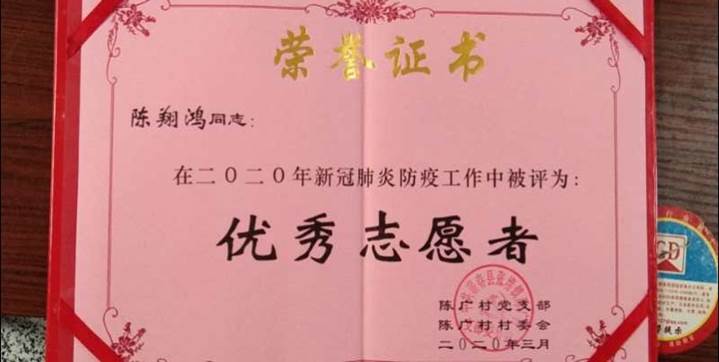 荣誉证书
陈翔鸿同志：
在二〇二〇年新冠肺炎防疫工作中被评为：
优秀志愿者
陈广村党支部
陈广村村委会
二〇二〇年三月